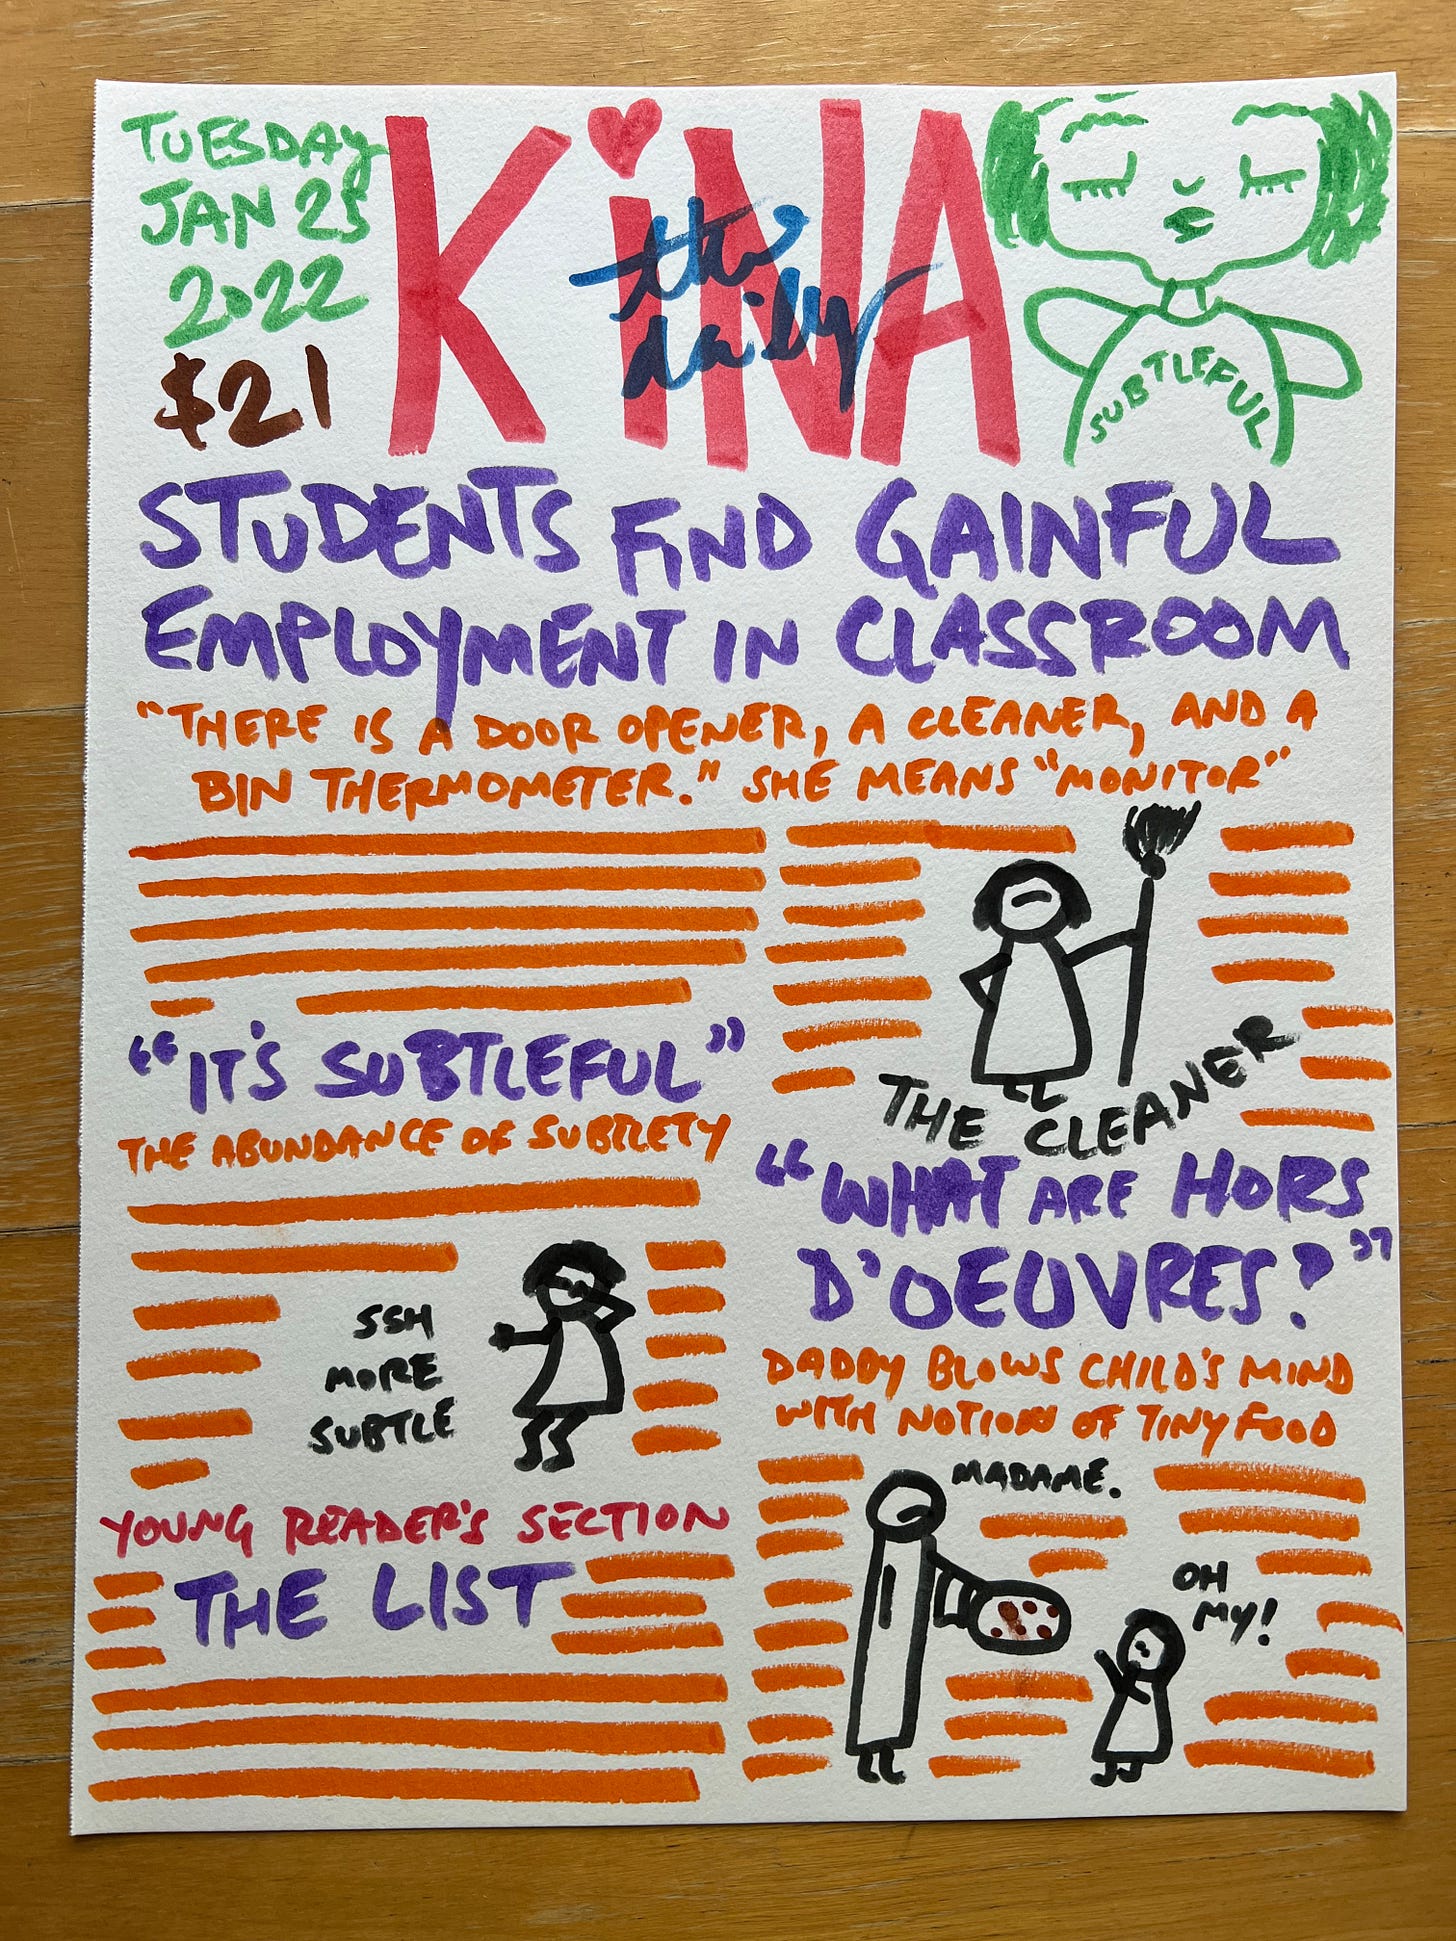 TUESDAY
JAN 25
2022
$21
KiNA
the
daily
SUBTLEFUL
STUDENTS FIND GAINFUL
EMPLOYMENT IN CLASSROOM
"THERE IS A DOOR OPENER, A CLEANER, AND A
BIN THERMOMETER." SHE MEANS "MONITOR"
THE CLEANER
"IT'S SUBTLEFUL"
THE ABUNDANCE OF SUBTLETY
SSH
MORE
SUBTLE
"WHAT ARE HORS
D'OEUVRES?"
DADDY BLOWS CHILD'S MIND
WITH NOTION OF TINY FOOD
MADAME.
OH
MY!
YOUNG READER'S SECTION
THE LIST